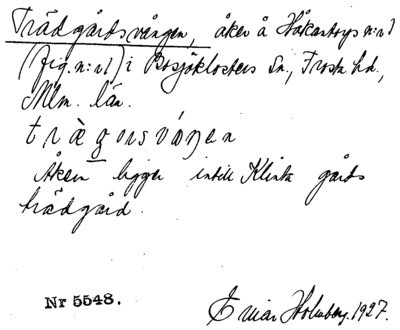 Trädgårdsvången, åker å Håkantorps n:r 1
(fig. n:r 1) i Bosjöklosters Sn., Frosta hd.,
Mlm. län.
Åkern ligger intill Klinta gårds
trädgård.
Nr 5548.
Einar Holmberg. 1927.